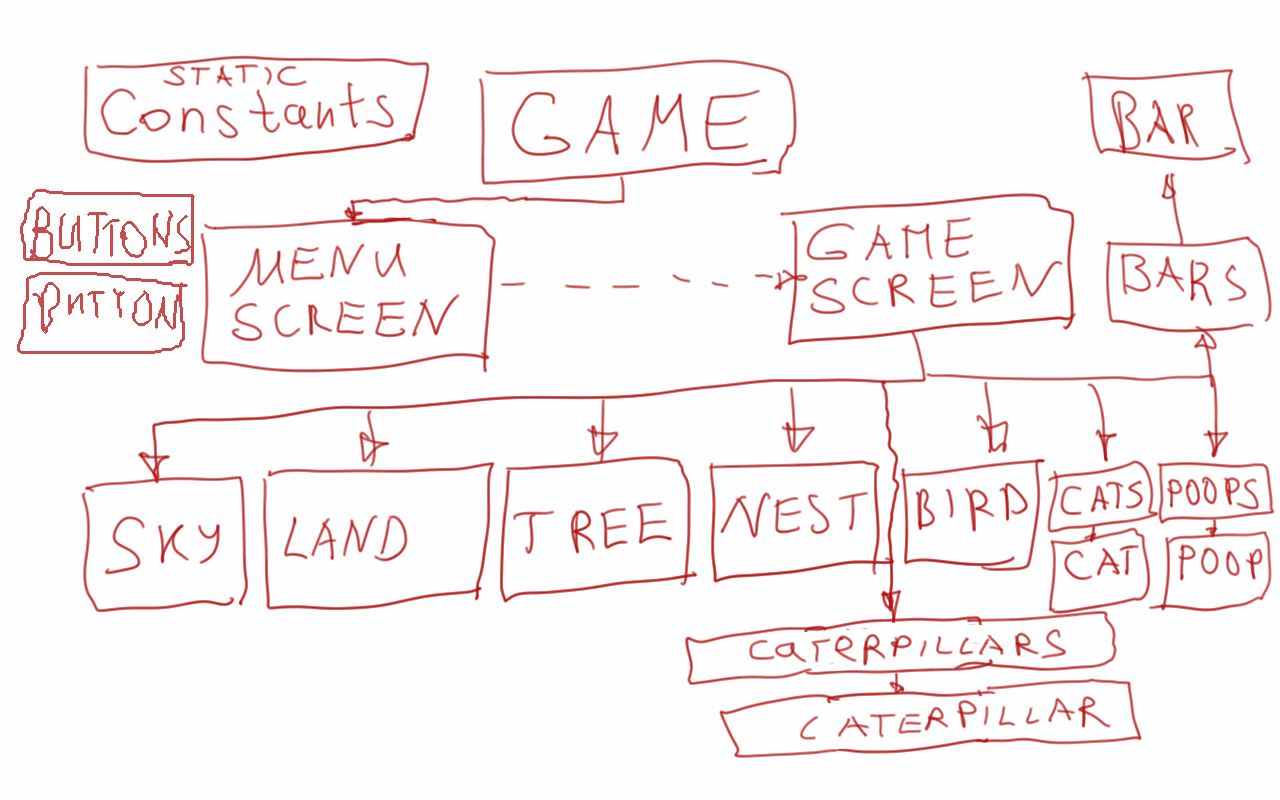 STATIC
Constants
GAME
BAR
BUTTONS
BUTTON
MENU
SCREEN
GAME
SCREEN
BARS
SKY
LAND
TREE
NEST
BIRD
CATS
CAT
POOPS
POOP
CATERPILLARS
CATERPILLAR